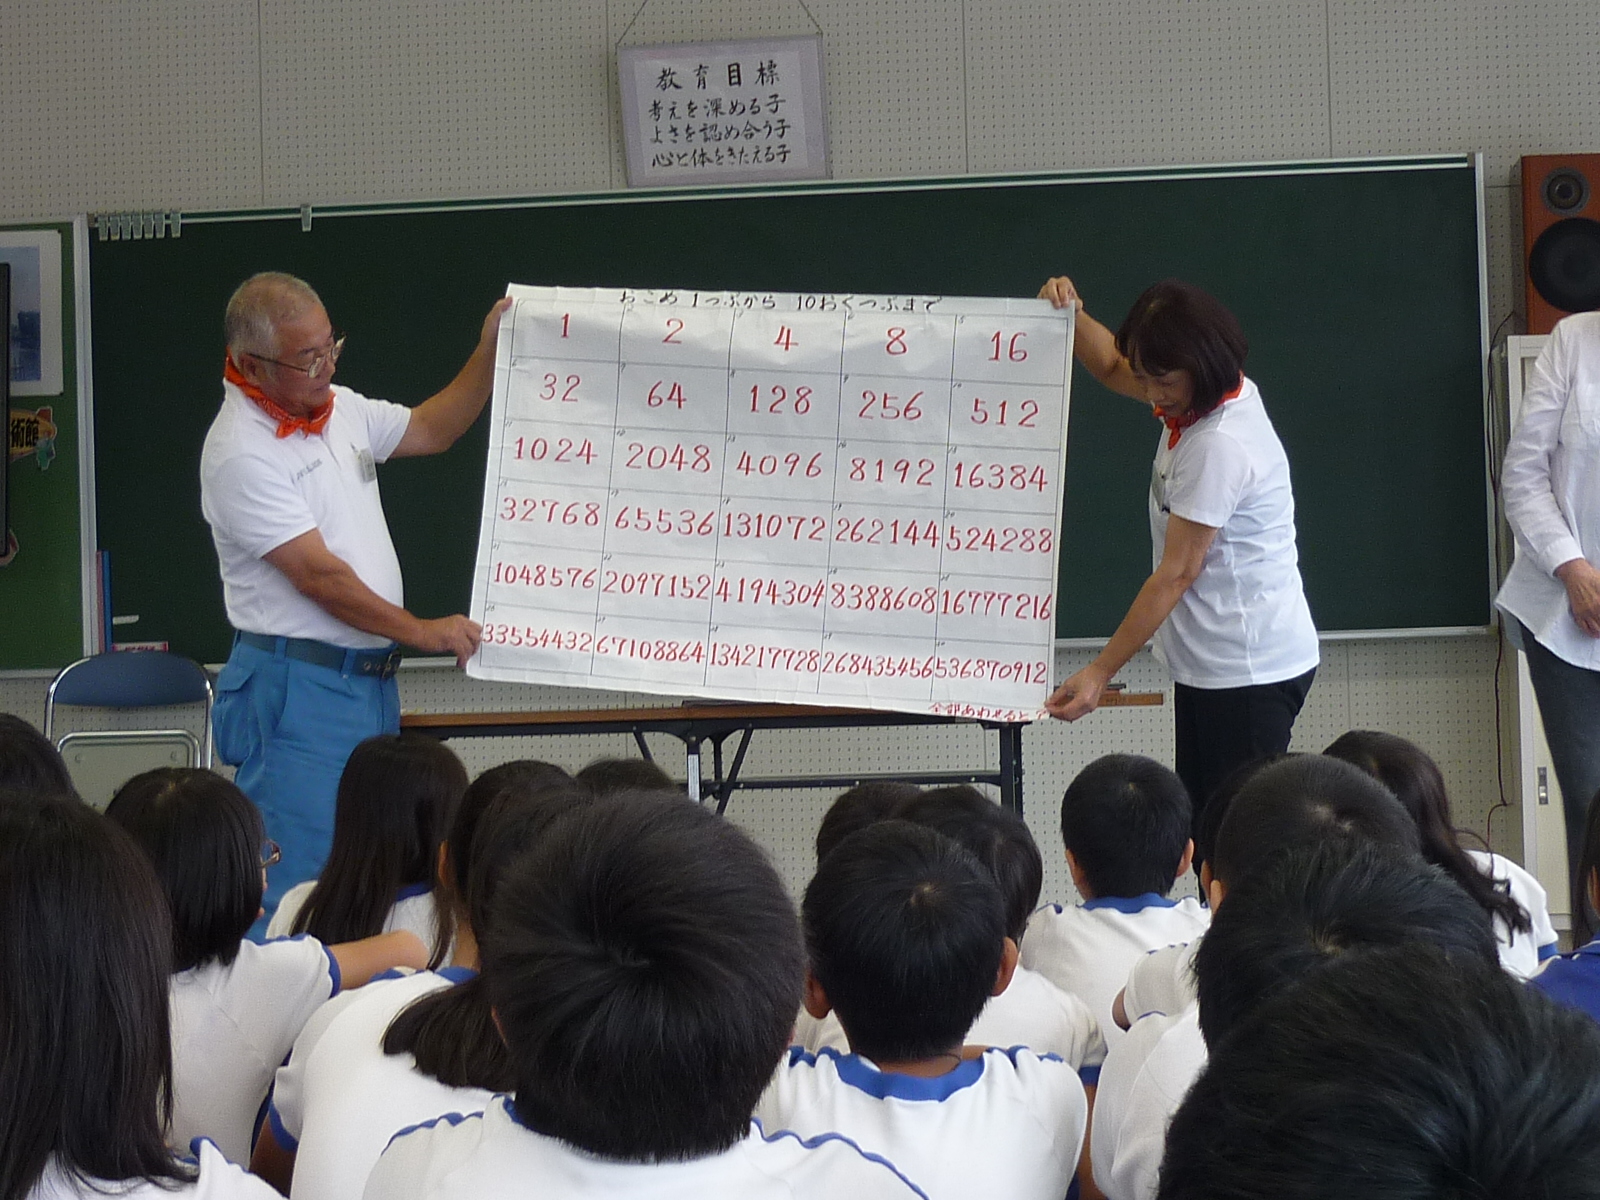 教育目標
考えを深める子
よさを認め合う子
心と体をきたえる子
おこめ 1つぶから 10おくつぶまで
1 2 4 8 16
32 64 128 256 512
1024 2048 4096 8192 16384
32768 65536 131072 262144 524288
1048576 2097152 4194304 8388608 16777216
33554432 67108864 134217728 268435456 536870912
全部あわせると?
術館